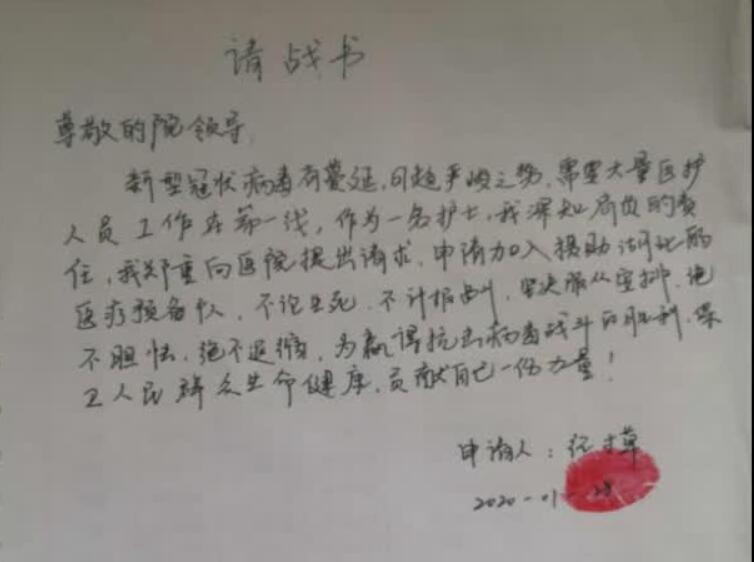 请战书
尊敬的院领导,
新型冠状病毒有蔓延,日趋严峻之势,需要大量医护
人员工作在第一线,作为一名护士,我深知肩负的责
任,我郑重向医院提出请求,申请加入援助湖北的
医疗预备队,不论生死,不计报酬,坚决服从安排,绝
不胆怯,绝不退缩,为赢得抗击病毒战斗的胜利,保
卫人民群众生命健康,贡献自己一份力量!
申请人:草
2020-01-28